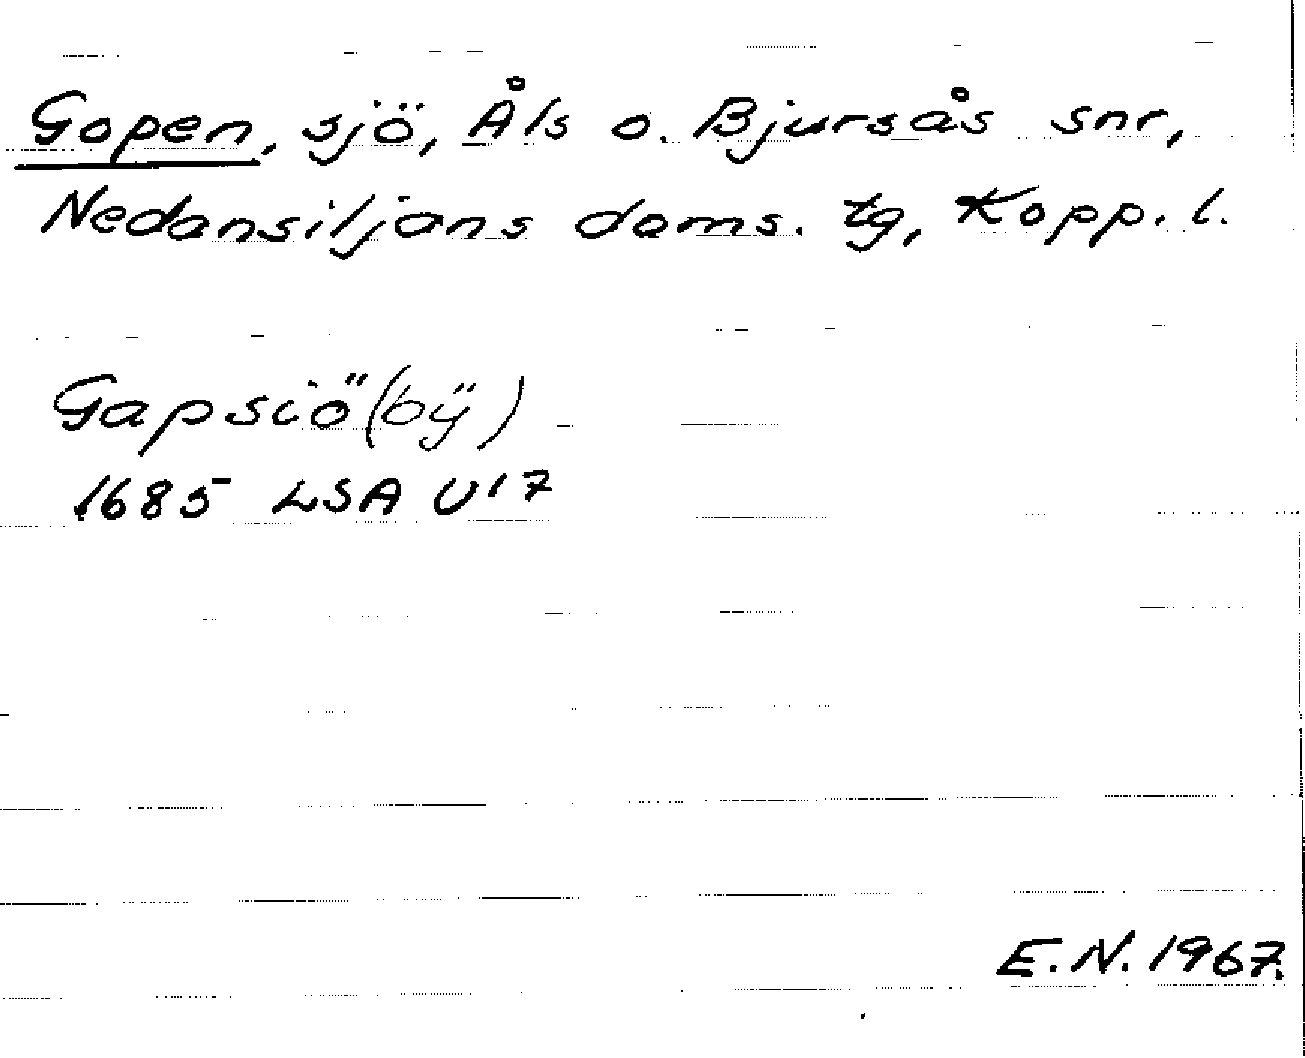 Gopen, sjö, Åls o. Bjursås snr,
Nedansiljans doms. tg, Kopp. l.
Gapsiö (bÿ)
1685 LSA U17
E.N. 1967.